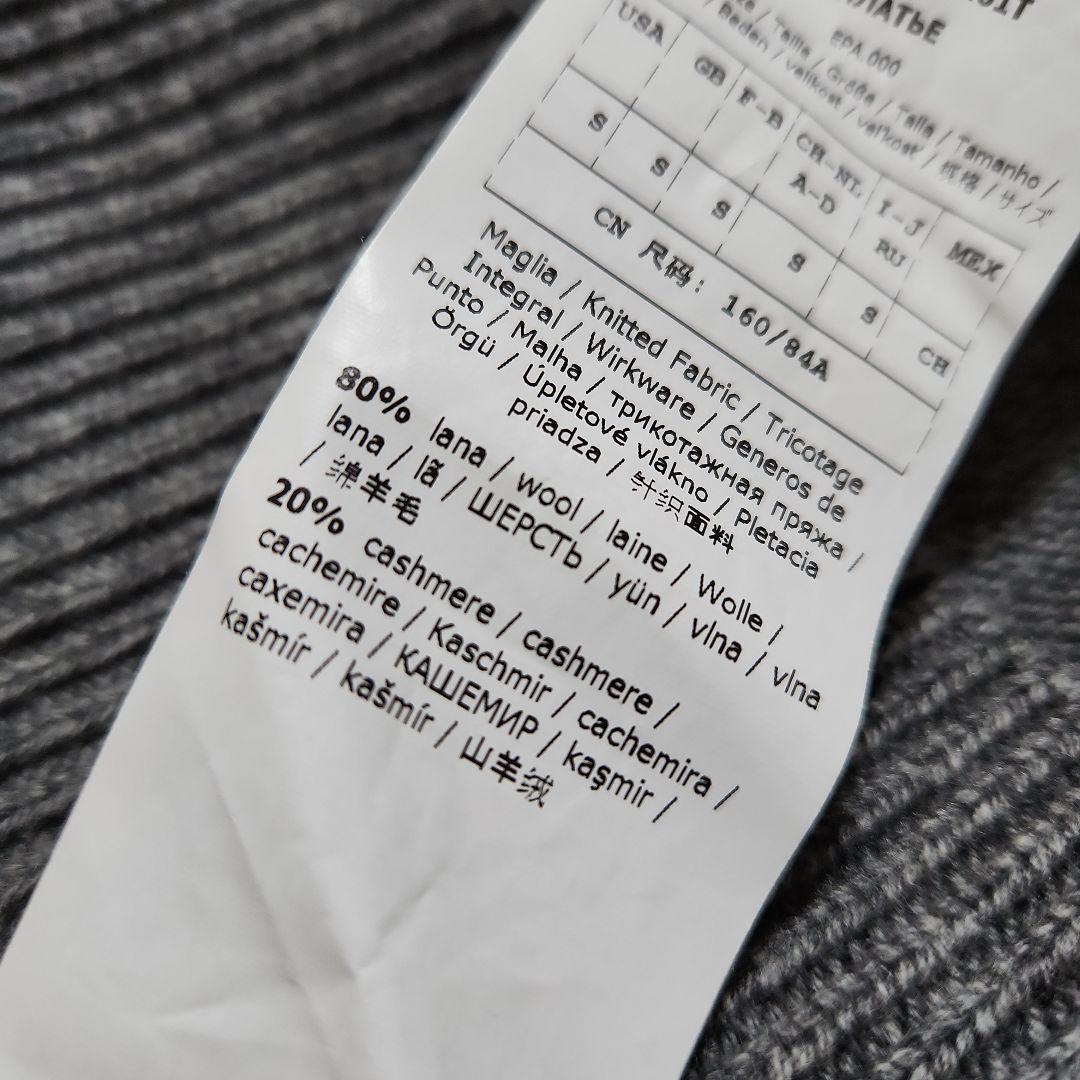 ЛАТЬЕ
EPA.000
Talla / Größe / Talla / Tamanho /
/ Beden / velikost / veľkosť / 规格 / サイズ
USA GB F-B CH-NL A-D I-J RU MEX
S S S S S CH
CN 尺码: 160/84A
Maglia / Knitted Fabric / Tricotage
Integral / Wirkware / Generos de
Punto / Malha / трикотажная пряжа /
Örgü / Úpletové vlákno / Pletacia
priadza / 针织面料
80% lana / wool / laine / Wolle /
lana / lã / ШЕРСТЬ / yün / vlna / vlna
/ 绵羊毛
20% cashmere / cashmere /
cachemire / Kaschmir / cachemira /
caxemira / КАШЕМИР / kaşmir /
kašmír / kašmír / 山羊绒